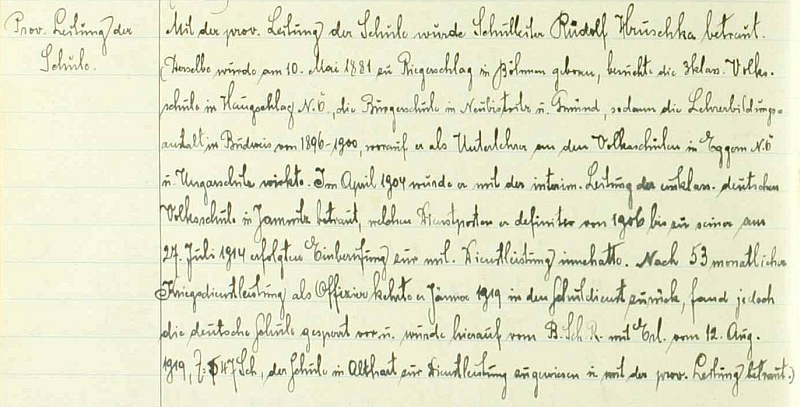 Prov. Leitung der
Schule.
Mit der prov. Leitung der Schule wurde Schulleiter Rudolf Hruschka betraut.
(Derselbe wurde am 10. Mai 1881 zu Riegerschlag in Böhmen geboren, besuchte die 3klass. Volks-
schule in Haugschlag N.Ö., die Bürgerschule in Neubistritz u. Gmünd, sodann die Lehrerbildungs-
anstalt in Budweis von 1896-1900, worauf er als Unterlehrer an den Volksschulen in Eggern N.Ö
u. Ungarschitz wirkte. Im April 1904 wurde er mit der interim. Leitung der einklass. deutschen
Volksschule in Jamnitz betraut, welchen Dienstposten er definitiv von 1906 bis zu seiner am
27. Juli 1914 erfolgten Einberufung zur mil. Dienstleistung innehatte. Nach 53 monatlicher
Kriegsdienstleistung als Offizier kehrte er Jänner 1919 in den Schuldienst zurück, fand jedoch
die deutsche Schule gesperrt vor u. wurde hierauf vom B. Sch. R. mit Erl. vom 12. Aug.
1919, Z: 47 Sch, der Schule in Althart zur Dienstleistung zugewiesen u. mit der prov. Leitung betraut.)